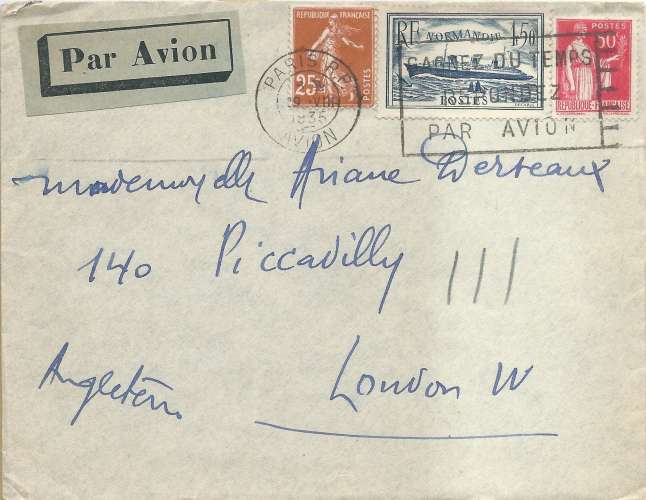 Par Avion
REPUBLIQUE FRANÇAISE
25c POSTES
RF NORMANDIE 1f50
POSTES
POSTES
50c
REPUBLIQUE FRANÇAISE
PARIS R.P.
VIII
1935
AVION
GAGNEZ DU TEMPS
PAR AVION
Mademoiselle Ariane Derseaux
140 Piccadilly
London W
Angleterre